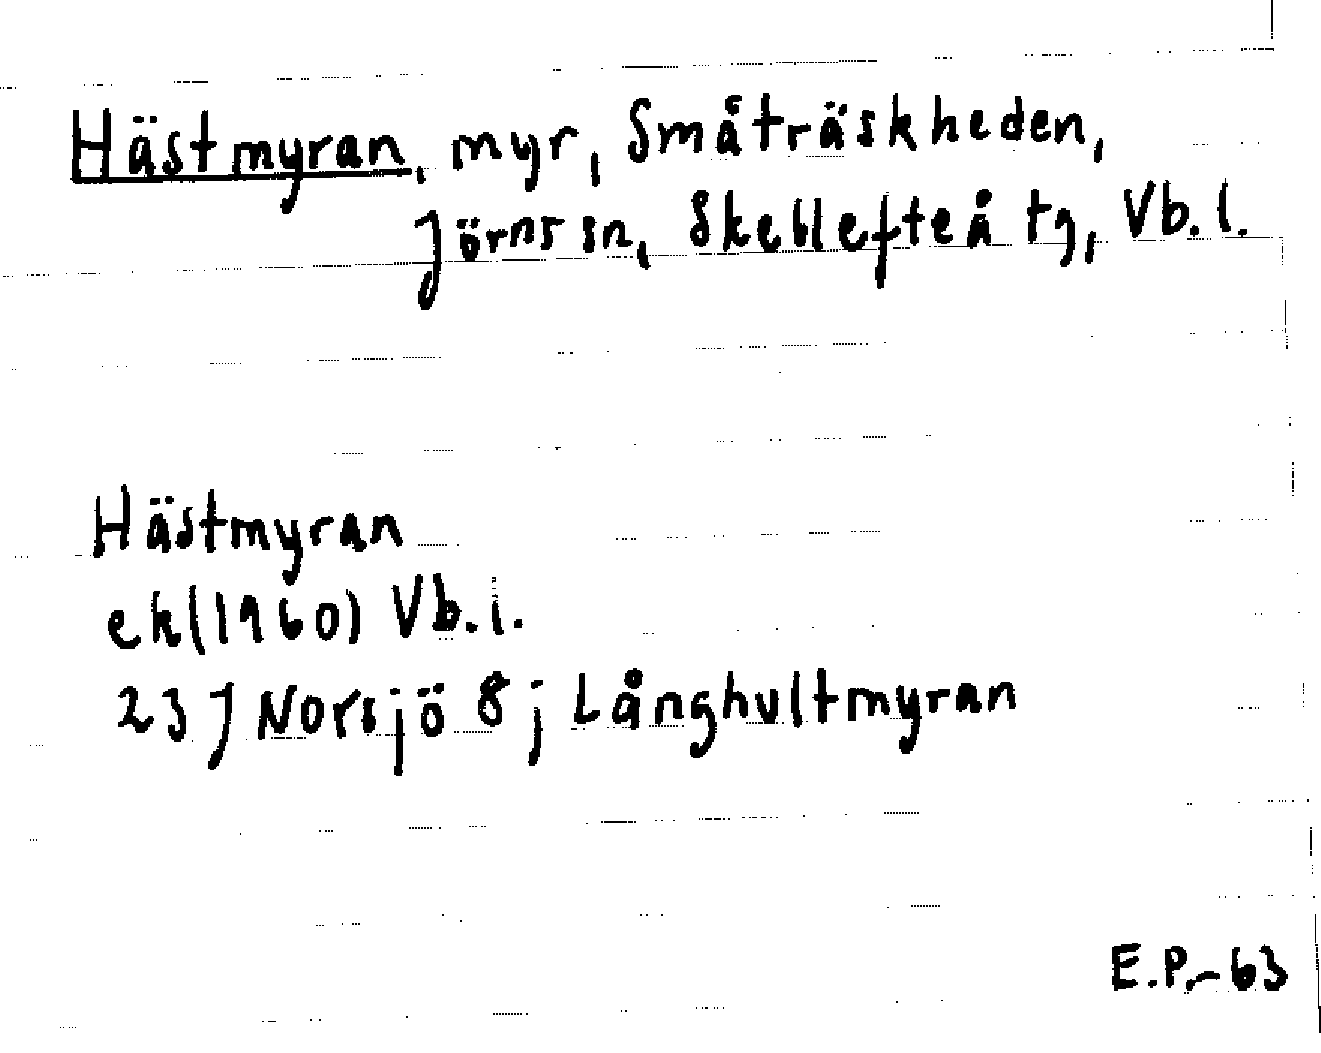 Hästmyran, myr, Småträskheden,
Jörns sn, Skellefteå tg, Vb. l.
Hästmyran
ek (1960) Vb. l.
23 J Norsjö 8 j Långhultmyran
E.P.-63